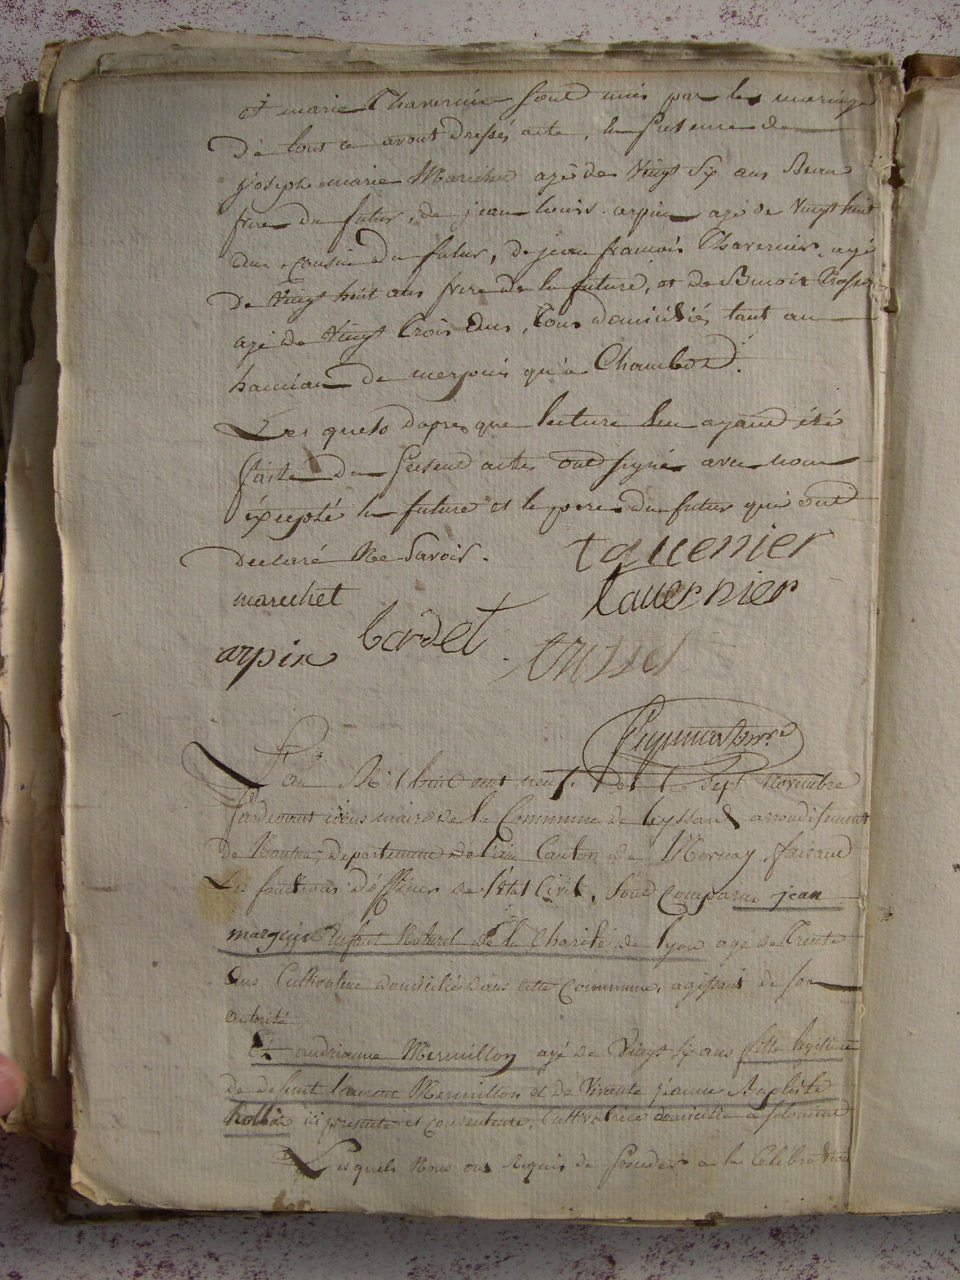 et marie Thavernier sont unis par le mariage
De tout ce avont Dressés acte, en presence de
joseph marie Marechet agé de Vingt Six ans Beau
frere du futur, de jean Louis arpin agé de Vingt huit
ans cousin du futur, de jean francois Thavernier agé
De Vingt huit ans frere de la future, et de Benoit
agé de Vingt trois ans, tous domiciliés tant au
hameau de qu'à Chambod.
Les quels d'apres que lecture leu ayant été
faite du present acte ont signé avec nous
éxcepté la future et le pere du futur qui ont
declaré Ne Savoir.
tavernier
marechet
tavernier
bordet
arpin
trosset
L'an Mil huit cent neuf. Et le Sept Novembre
Pardevant nous maire de la Commune de Leyssard arrondisement
De Nantua, departement de l'ain Canton de Mornay, faisant
Les fonctions d'officier de l'état Civil, Sont Comparu jean
marguin Enfant Naturel de la Charité de Lyon agé de Trente
Ans Cultivateur domicilié dans cette Commune, agissant de son
autorité
Et andrianne Mermillon agé de Vingt six ans fille legitime
de defunt Mermillon et de Vivante jeanne Baptiste
ici presente et consentente, Cultivatrice domiciliée a Solomiat
Lesquels Nous ont requis de proceder a la Celebration